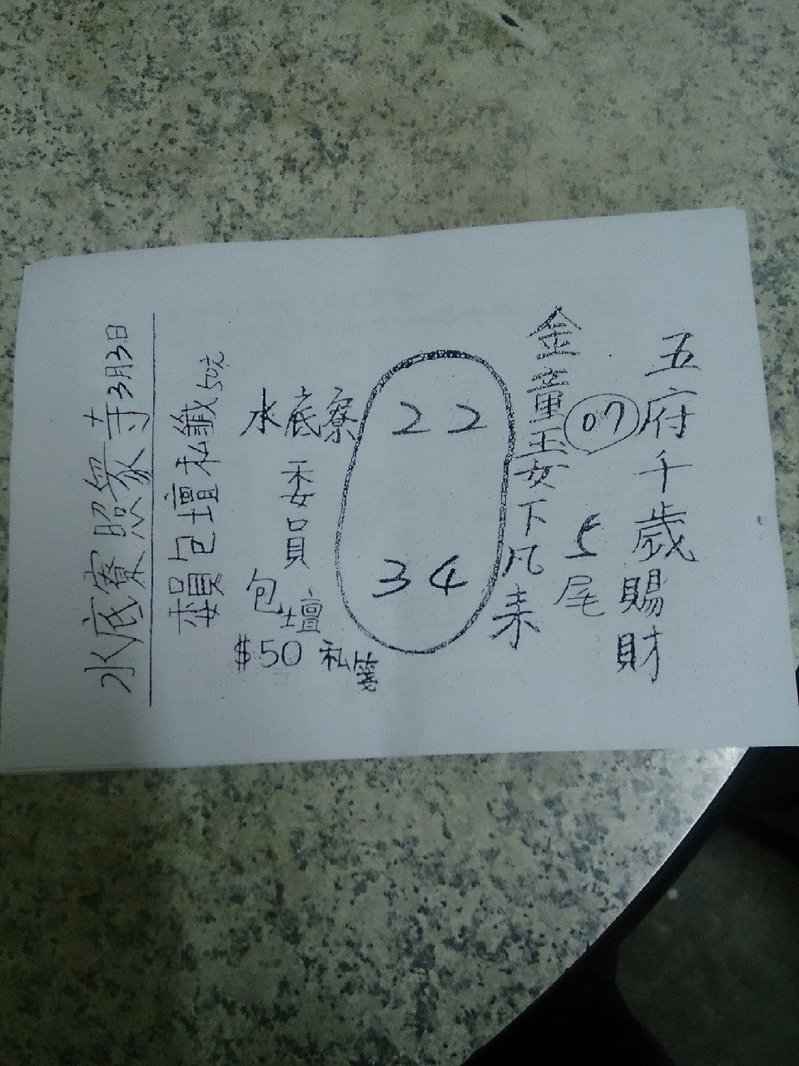 五府千歲賜財
07 5尾
金童玉女下凡來
22
34
水底寮
委員
包壇
$50 私箋
賴包壇私籤50元
水底寮照眾寺3月3日